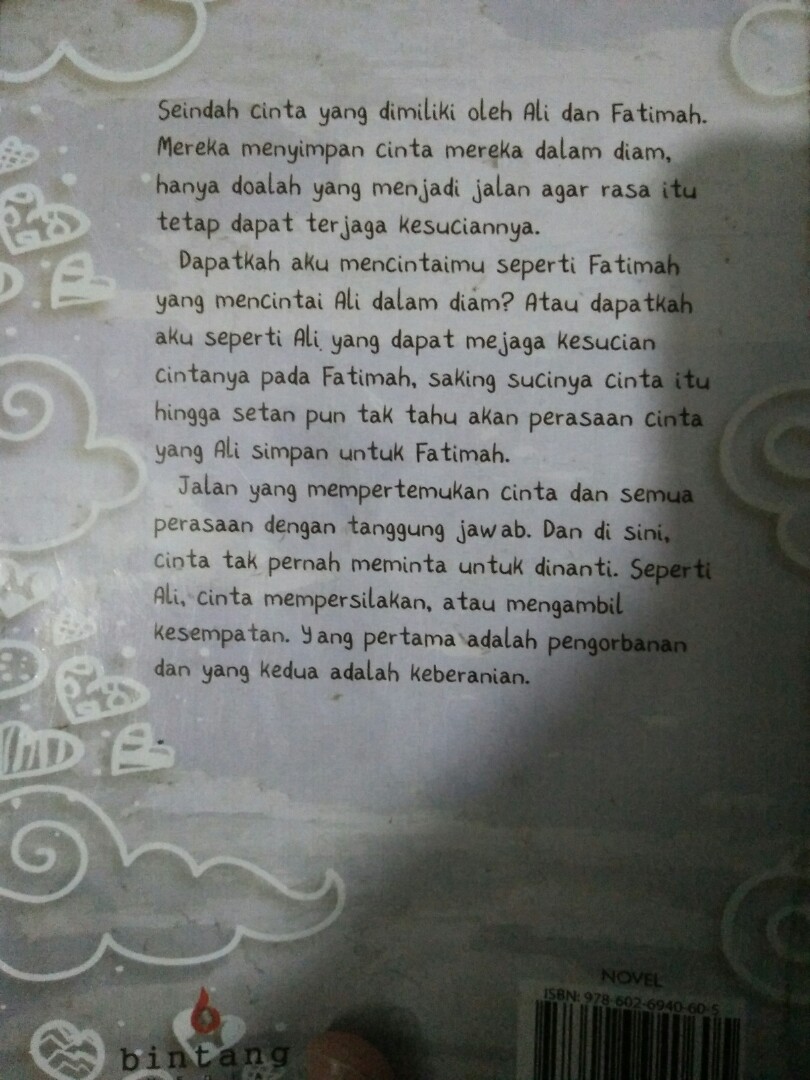 Seindah cinta yang dimiliki oleh Ali dan Fatimah.
Mereka menyimpan cinta mereka dalam diam,
hanya doalah yang menjadi jalan agar rasa itu
tetap dapat terjaga kesuciannya.
Dapatkah aku mencintaimu seperti Fatimah
yang mencintai Ali dalam diam? Atau dapatkah
aku seperti Ali yang dapat mejaga kesucian
cintanya pada Fatimah, saking sucinya cinta itu
hingga setan pun tak tahu akan perasaan cinta
yang Ali simpan untuk Fatimah.
Jalan yang mempertemukan cinta dan semua
perasaan dengan tanggung jawab. Dan di sini,
cinta tak pernah meminta untuk dinanti. Seperti
Ali, cinta mempersilakan, atau mengambil
kesempatan. Yang pertama adalah pengorbanan
dan yang kedua adalah keberanian.
NOVEL
ISBN: 978-602-6940-60-5
bintang